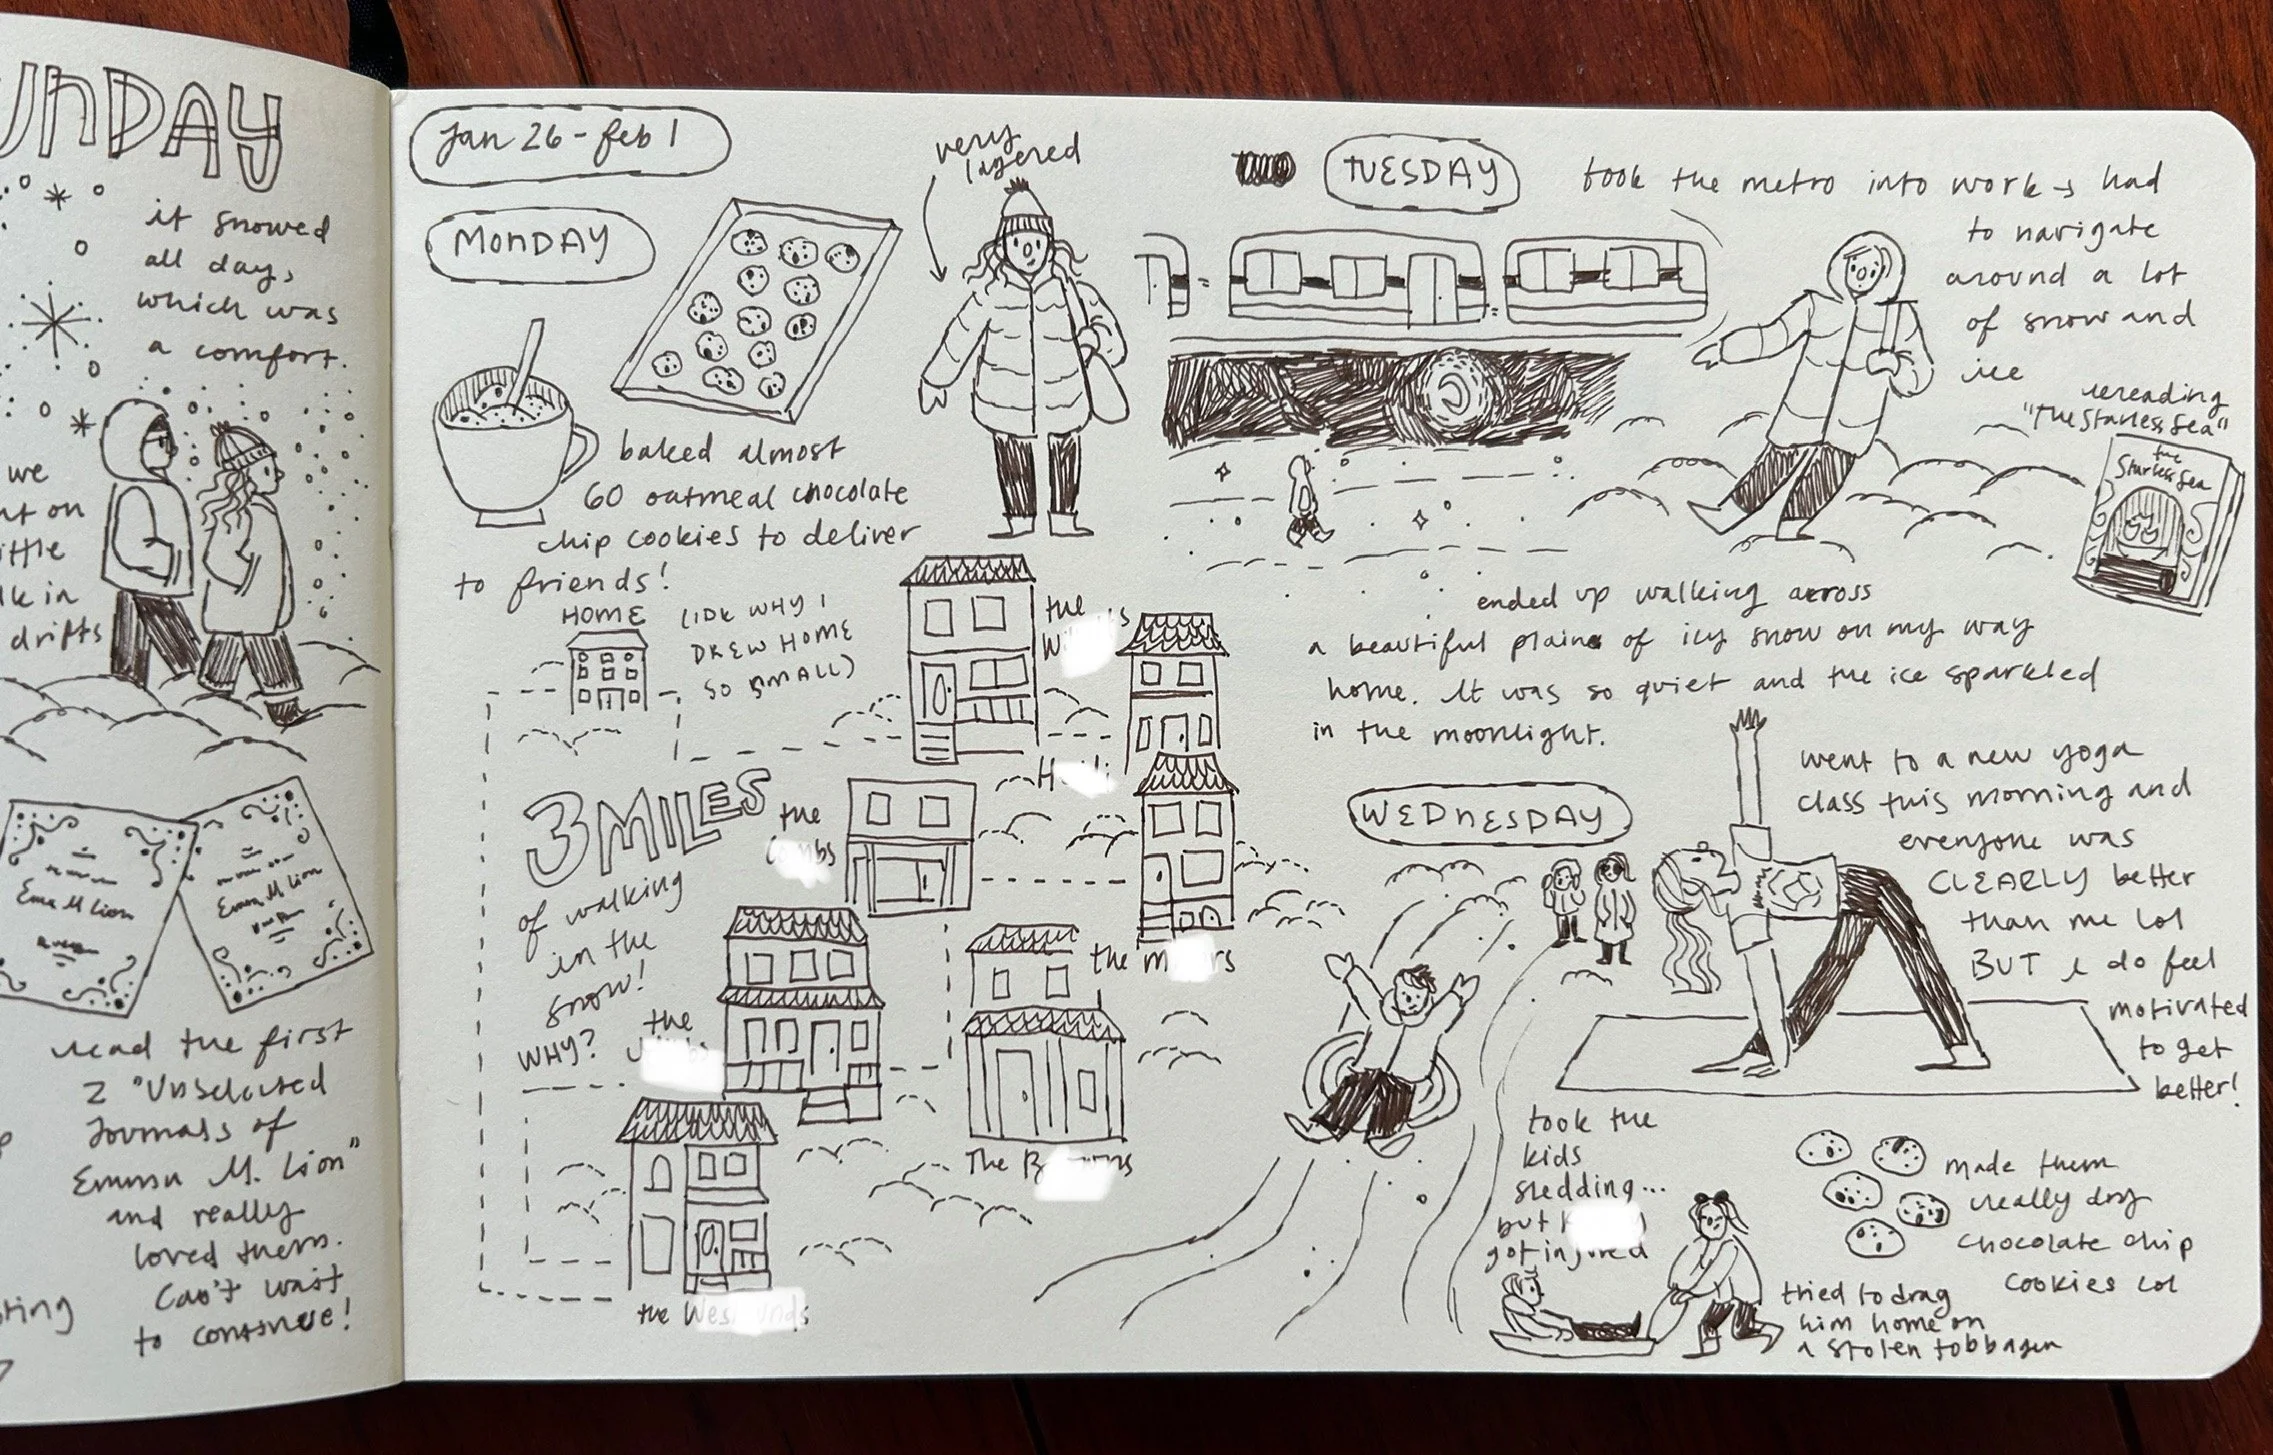 UNDAY
it snowed
all day,
which was
a comfort.
we
on
ittle
in
drifts
Emma M Lion
Emma M Lion
read the first
2 "Unselected
Journals of
Emma M. Lion"
and really
loved them.
Can't wait
to continue!
Jan 26 - feb 1
MONDAY
very
layered
baked almost
60 oatmeal chocolate
chip cookies to deliver
to friends!
HOME
(IDK WHY I
DREW HOME
SO SMALL)
the
3 MILES
of walking
in the
snow!
WHY?
the
the
the
The
the
TUESDAY
took the metro into work → had
to navigate
around a lot
of snow and
ice
rereading
"The Starless Sea"
the
Starless Sea
ended up walking across
a beautiful plain of icy snow on my way
home. It was so quiet and the ice sparkled
in the moonlight.
WEDNESDAY
went to a new yoga
class this morning and
everyone was
CLEARLY better
than me lol
BUT I do feel
motivated
to get
better!
took the
kids
sledding...
but
got injured
tried to drag
him home on
a stolen tobbagen
made them
really dry
chocolate chip
cookies lol